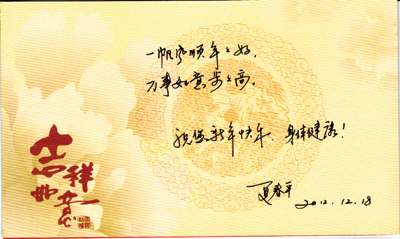 一帆风顺年々好,
万事如意步々高。
祝您新年快乐、身体健康!
夏春平
2012.12.18
吉祥如意